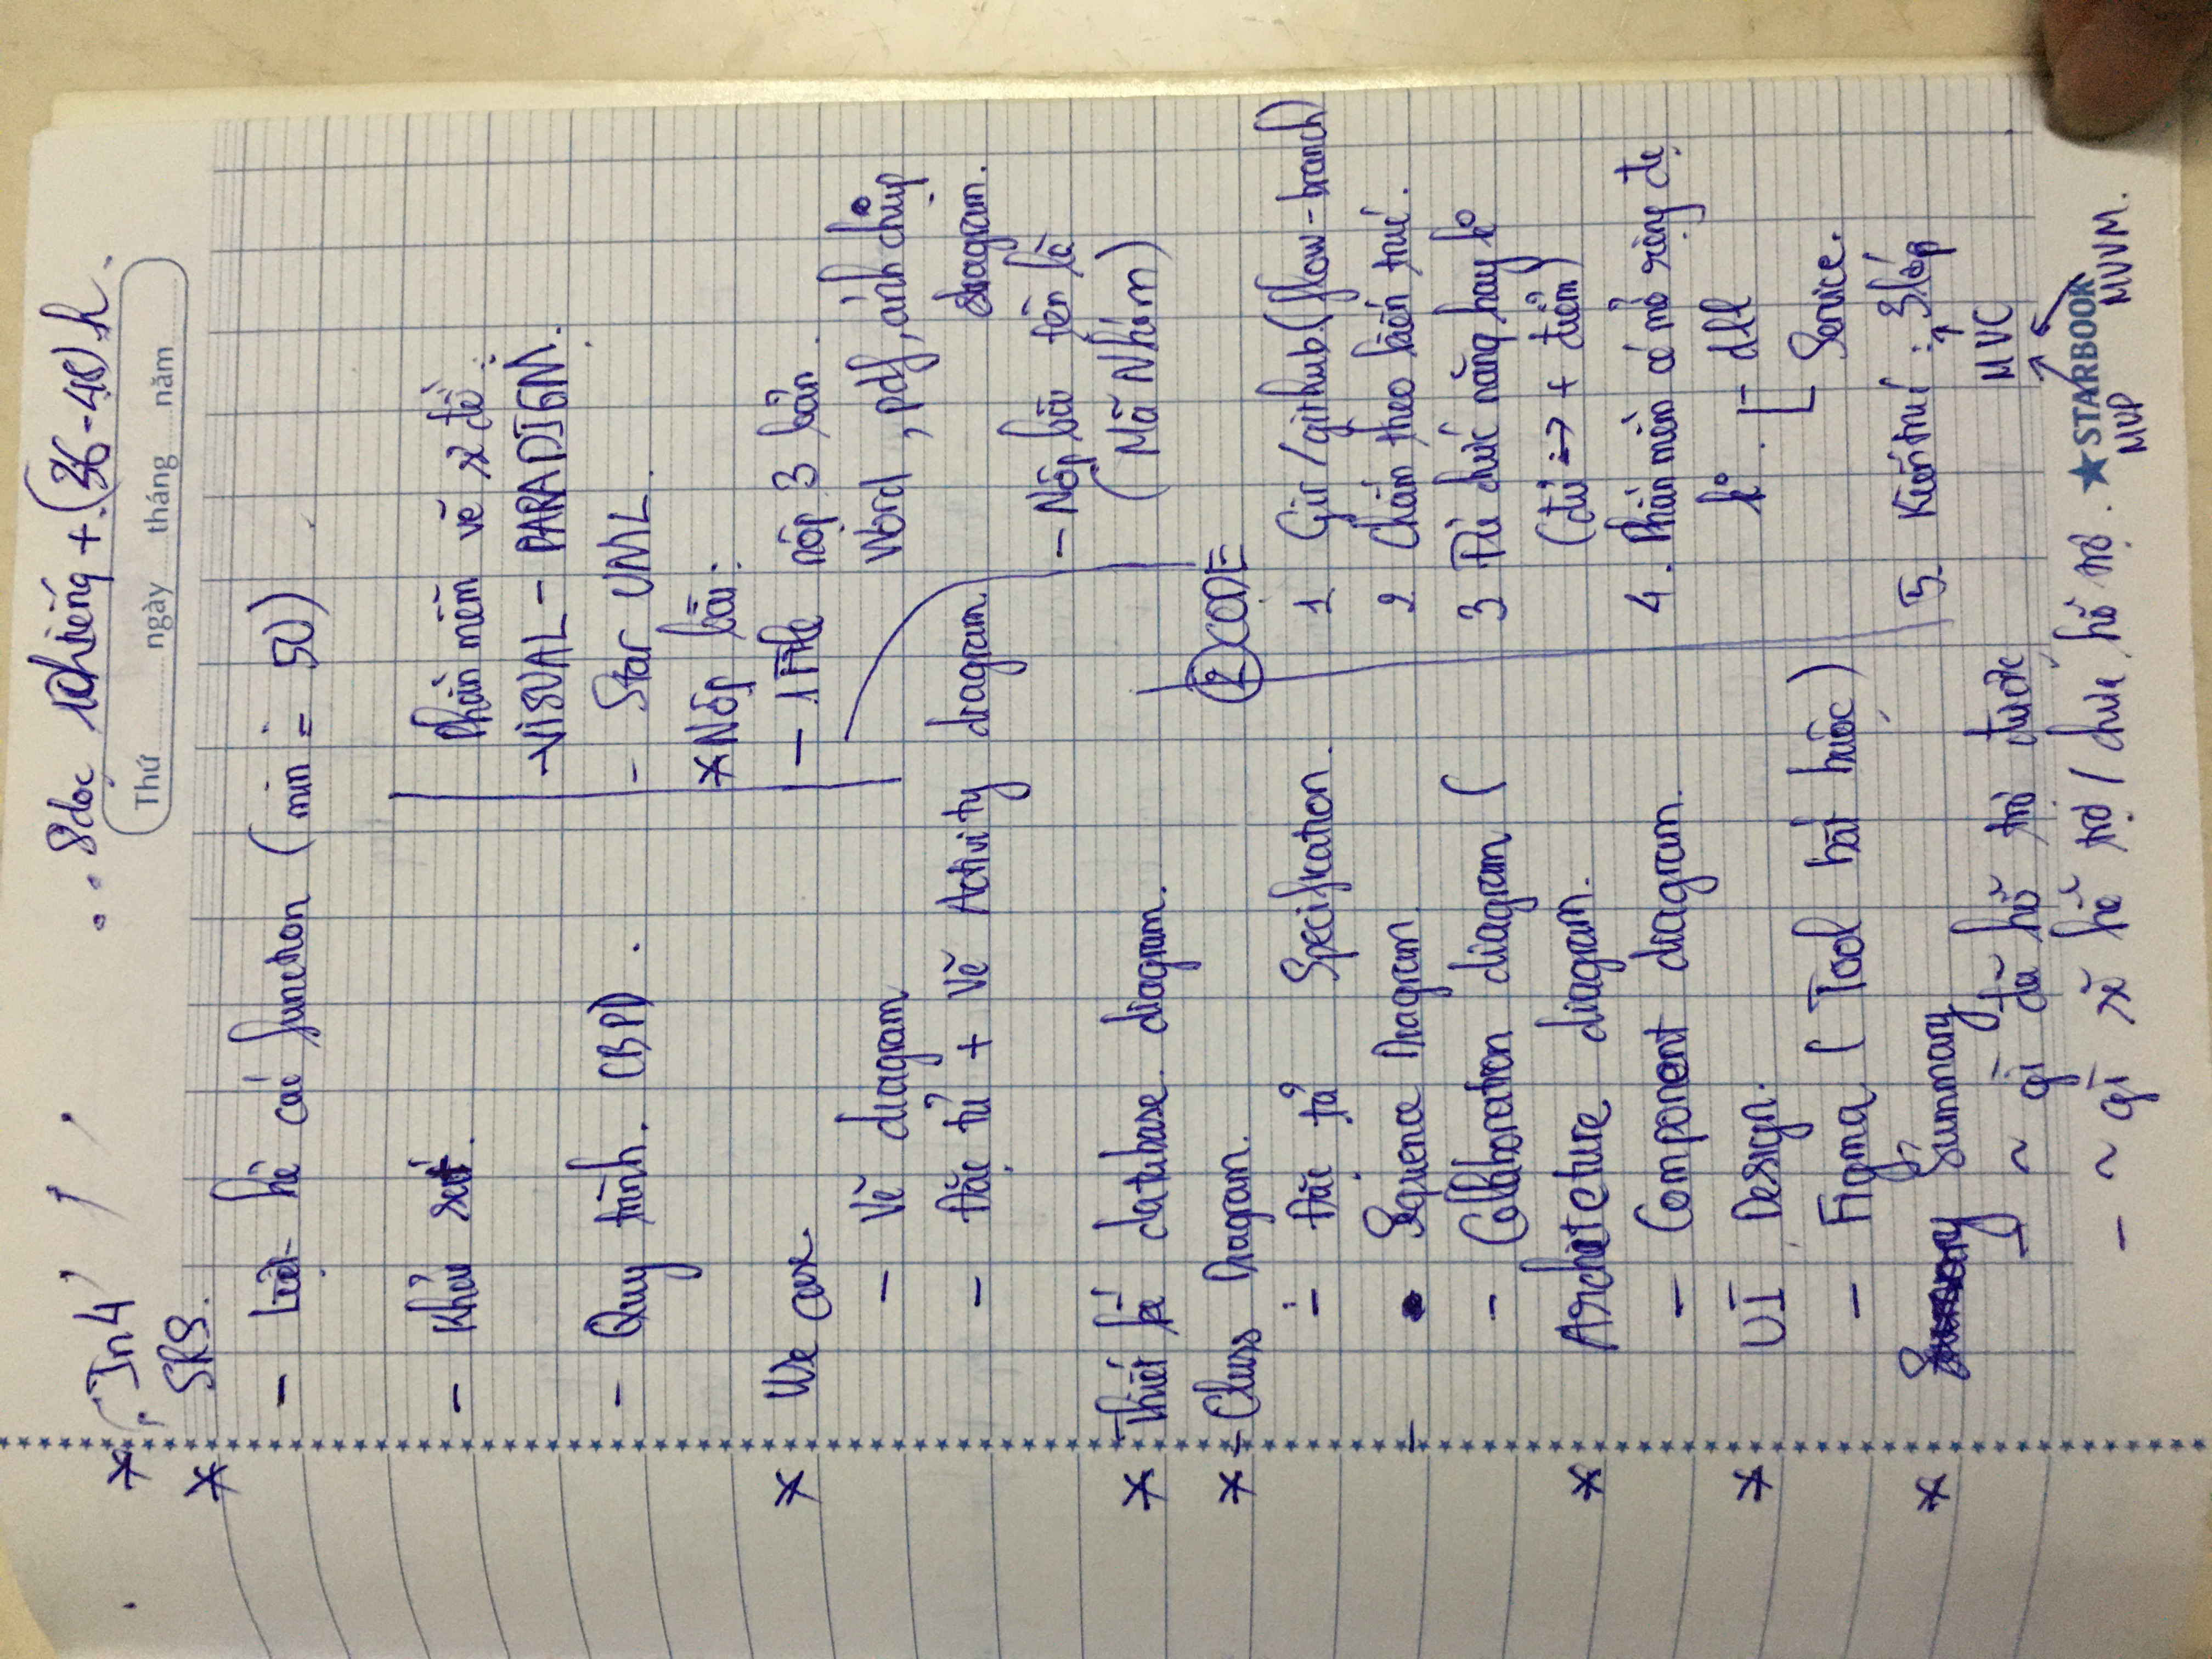 In4
(36-48) h
Thứ ngày tháng năm
* SRS.
- kê các function (min = 50)
- Khảo sát.
- Quy trình.
* Use case.
- Vẽ diagram
- Đặc tả + Vẽ Activity diagram.
* Thiết kế database diagram.
* - Class Diagram.
- Đặc tả Specification.
- Sequence Diagram
- Collaboration diagram (
* Architeture diagram.
- Component diagram.
* UI Design.
- Figma (Tool bắt buộc)
* Summary
- ~ gì đã hỗ trợ được
- ~ gì sẽ hỗ trợ / chưa hỗ trợ.
Phần mềm vẽ sơ đồ:
- VISUAL - PARADIGM.
- Star UML.
* Nộp bài:
- 1 File nộp 3 bản.
Word, pdf, ảnh chụp
diagram.
- Nộp bài tên là
(Mã Nhóm)
2 CODE
1 Git/github (flow-branch)
2 Chấm theo kiến trúc.
3 Đủ chức năng hay ko
(đủ => + điểm)
4. Phần mềm có mở rộng đc
ko. - dll
Service.
5. Kiến trúc: 3 lớp
MVC
★ STARBOOK
MVP MVVM.